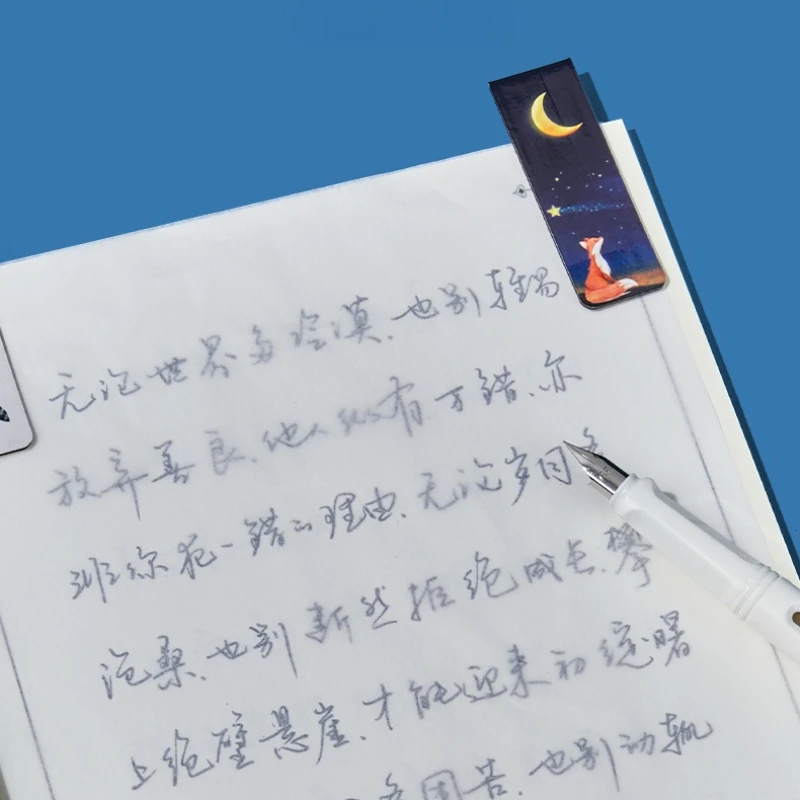 无论世界多冷漠、也别轻易
放弃善良、他人纵有万错、亦
非你犯一错的理由、无论岁月多
沧桑、也别断然拒绝成长、攀
上绝壁悬崖、才能迎来初绽曙
多困苦、也别动辄